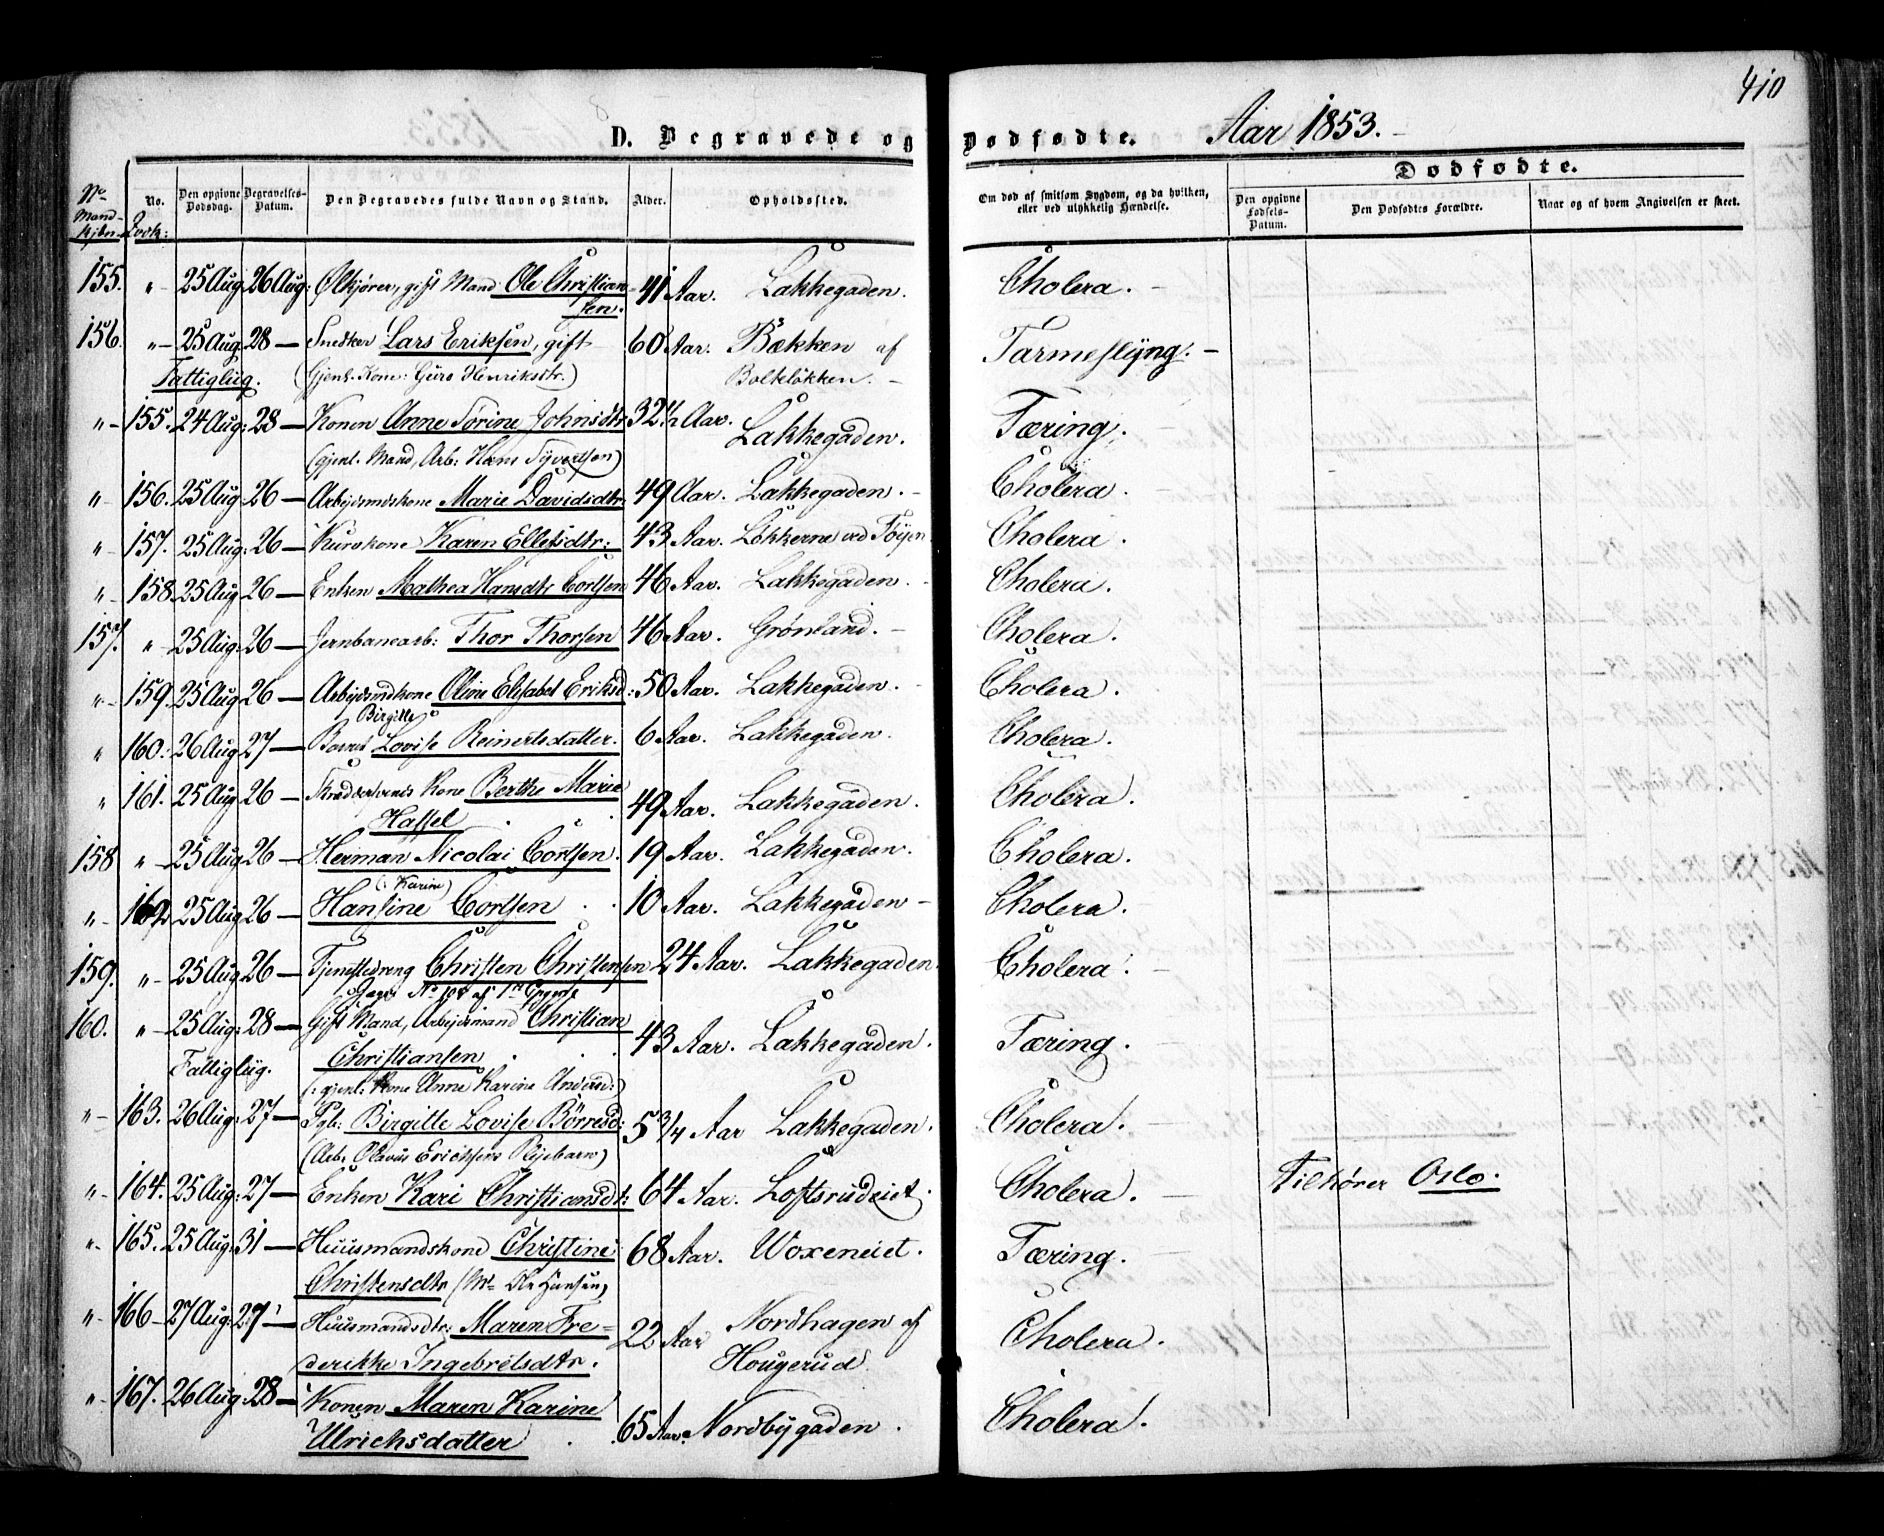 410
D. Begravede og Dødfødte. Aar 1853.
Dødfødte.
No Mand-kjøn No. Qvok: Den opgivne Dødsdag. Begravelses-Datum. Den Begravedes fulde Navn og Stand. Alder. Opholdssted. Om død af smitsom Sygdom, og da hvilken, eller ved ulykkelig Hændelse. Den opgivne Fødsels-Datum. Den Dødfødtes Forældre. Naar og af hvem Angivelsen er skeet.
155. " 25 Aug 26 Aug: Ølkjører, gift Mand Ole Christian- 41 Aar. Lakkegaden. Cholera.
sen.
156. " 25 Aug 28 — Snedker Lars Eriksen, gift 60 Aar. Bækken af Tarmeslyng.
Fattiglig. (Gjenl. Kone: Guro Henriksdtr.) Bolteløkken.
" 155. 24 Aug: 28 — Konen Anne Sørine Johnsdtr 32 ½ Aar. Lakkegaden. Tæring.
(gjenl. Mand, Arb: Hans Syvertsen)
" 156. 25 Aug 26 — Arbejdsmdskone Marie Davidsdtr 49 Aar. Lakkegaden. Cholera.
" 157. 25 Aug: 26 — Kone Karen Ellefsdtr: 43 Aar. Løkkerne ved Tøyen Cholera.
" 158. 25 Aug 26 — Enken Mathea Hansdtr Cortsen 46 Aar. Lakkegaden. Cholera.
157. " 25 Aug: 26 — Jernbanearb: Thor Thorsen 46 Aar. Grønland. Cholera.
" 159. 25 Aug 26 — Arbejdsmdkone Oline Elisabet Eriksd: 50 Aar. Lakkegaden. Cholera.
Birgitte
" 160. 26 Aug 27 — Barnet Lovise Reinertsdatter. 6 Aar. Lakkegaden. Cholera.
" 161. 25 Aug 26 — Skrædersvends Kone Berthe Marie 49 Aar. Lakkegaden. Cholera.
Hassel
158 " 25 Aug 26 — Herman Nicolai Cortsen. 19 Aar. Lakkegaden. Cholera.
(: Karine)
" 162 25 Aug 26 — Hansine Cortsen 10 Aar. Lakkegaden — Cholera.
159. " 25 Aug 26 — Tjenestedreng Christen Christensen 24 Aar. Lakkegaden. Cholera.
Jæger No 108 af
160. " 25 Aug: 28 — Gift Mand, Arbejdsmand Christian 43 Aar. Lakkegaden. Tæring.
Fattiglig. Christiansen
(: gjenl: Kone Anne Karine Andersd:)
" 163. 26 Aug: 27 — Pgb: Birgitte Lovise Børresd: 5 ¾ Aar Lakkegaden. Cholera.
(Arb: Olavus Ericksens Plejebarn)
" 164. 25 Aug: 27 — Enken Kari Christiansdt: 64 Aar. Loftsrudeiet. Cholera. Tilhører Oslo.
" 165. 25 Aug: 31 — Huusmandskone Christine 68 Aar. Woxeneiet. Tæring.
Christensdtr (Md Ole Hansen)
" 166 27 Aug: 27 Huusmandsdtr: Maren Fre- 22 Aar Nordhagen af Cholera.
derikke Ingebretsdtr. Hougerud.
" 167. 26 Aug 28 — Konen Maren Karine 65 Aar. Nordbygaden. Cholera.
Ulrichsdatter